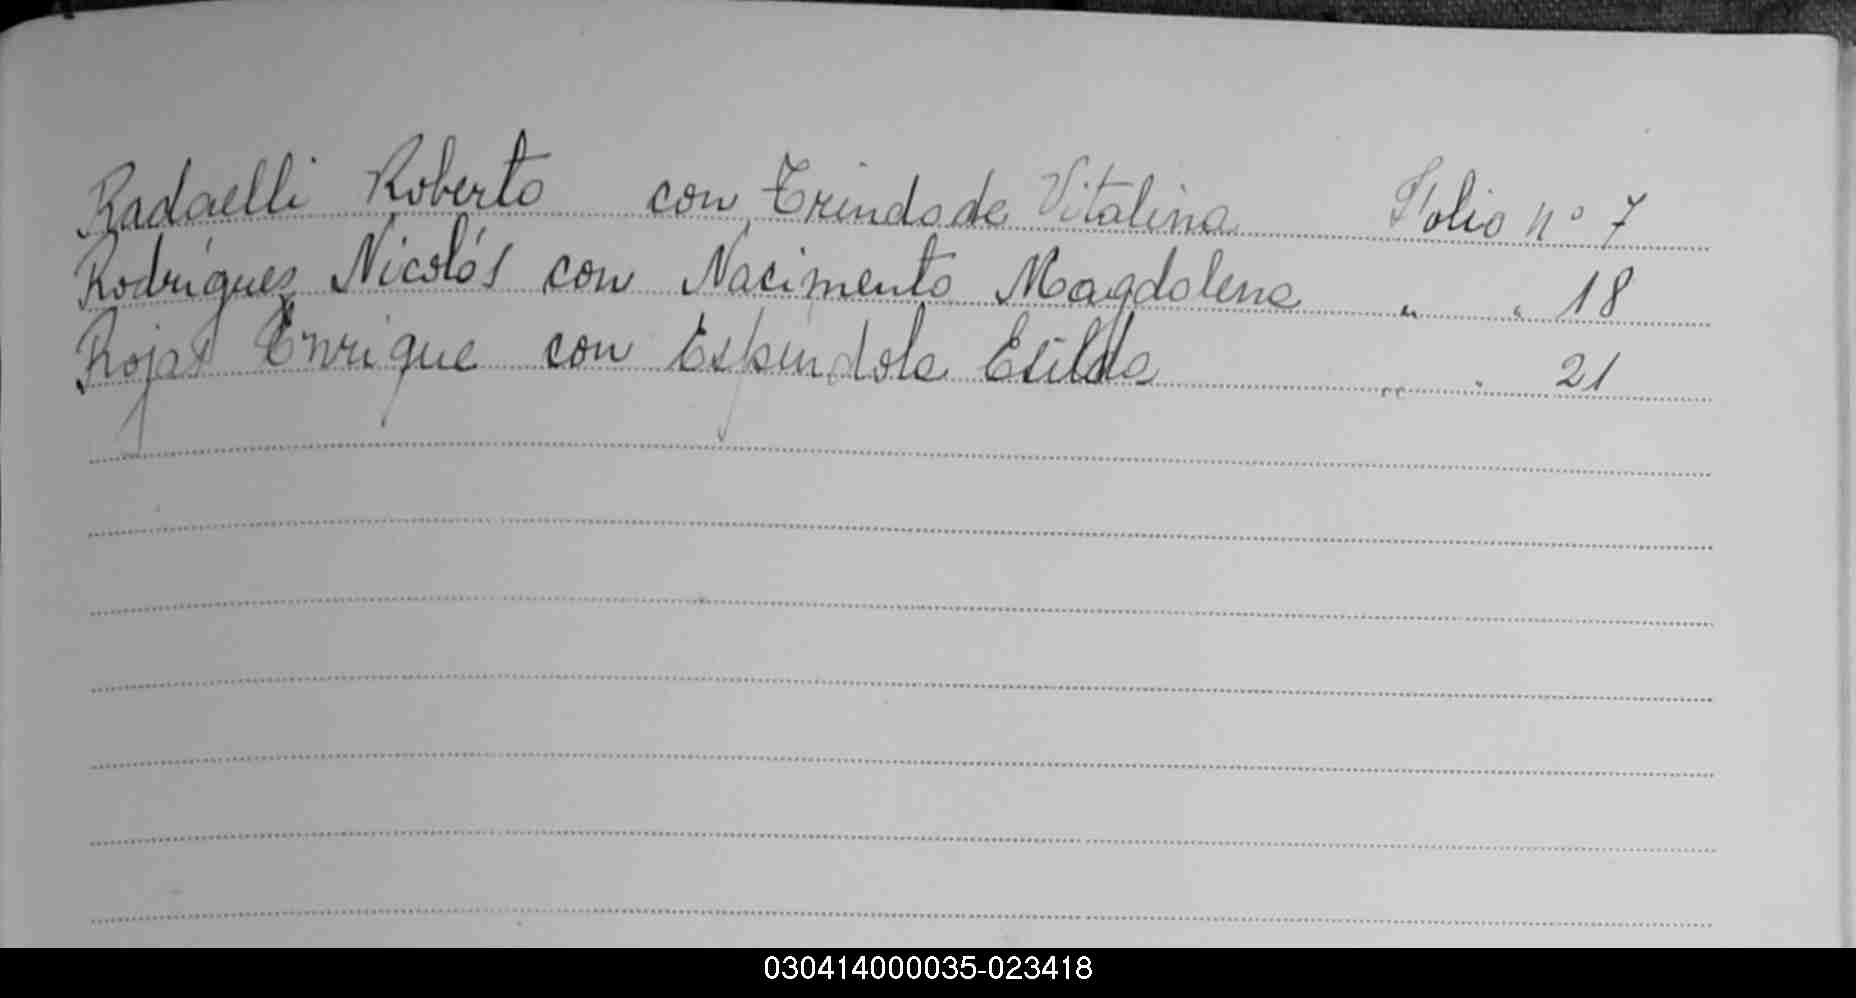 Radaelli Roberto con Trindade Vitalina Folio nº 7
Rodríguez Nicolás con Nacimento Magdalena " " 18
Rojas Enrique con Espindola Esilda " " 21
030414000035-023418